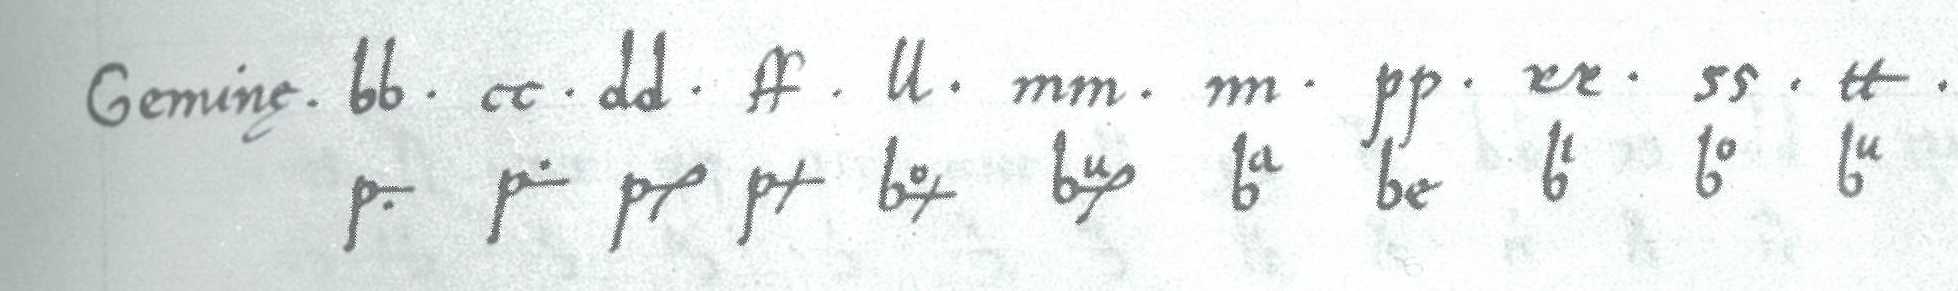 Geminę. bb. cc. dd. ff. ll. mm. nn. pp. rr. ss. tt.
bᵃ be bⁱ bᵒ bᵘ